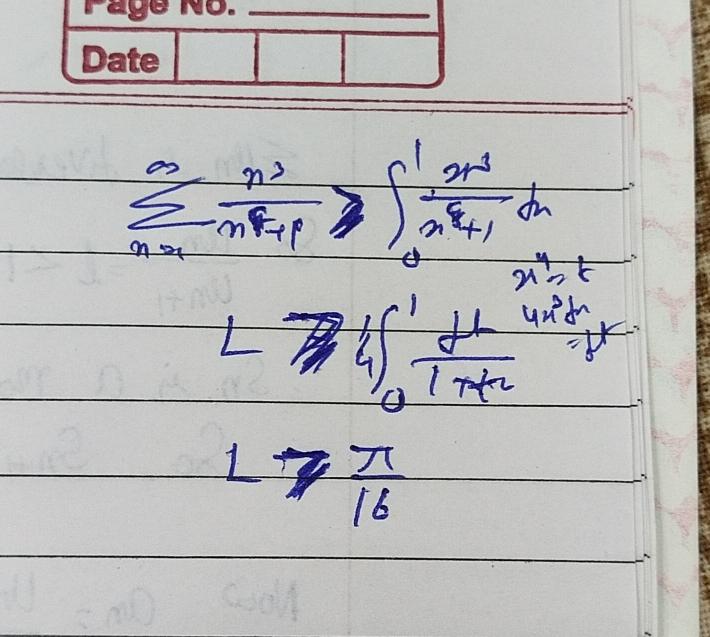 Page No.
Date
∞
∑ n³/(n⁸+1) ≥ ∫₀¹ x³/(x⁸+1) dx
x⁴ = t
4x³dx
= dt
L ≥ 1/4 ∫₀¹ dt/(1+t²)
L ≥ π/16